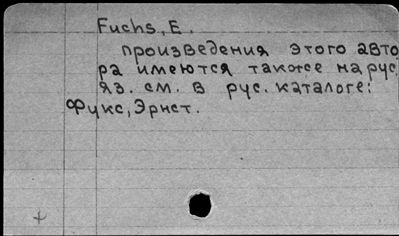 Fuchs, E.
произведения этого авто
ра имеются также на рус.
яз. см. в рус. каталоге:
Фукс, Эрнст.